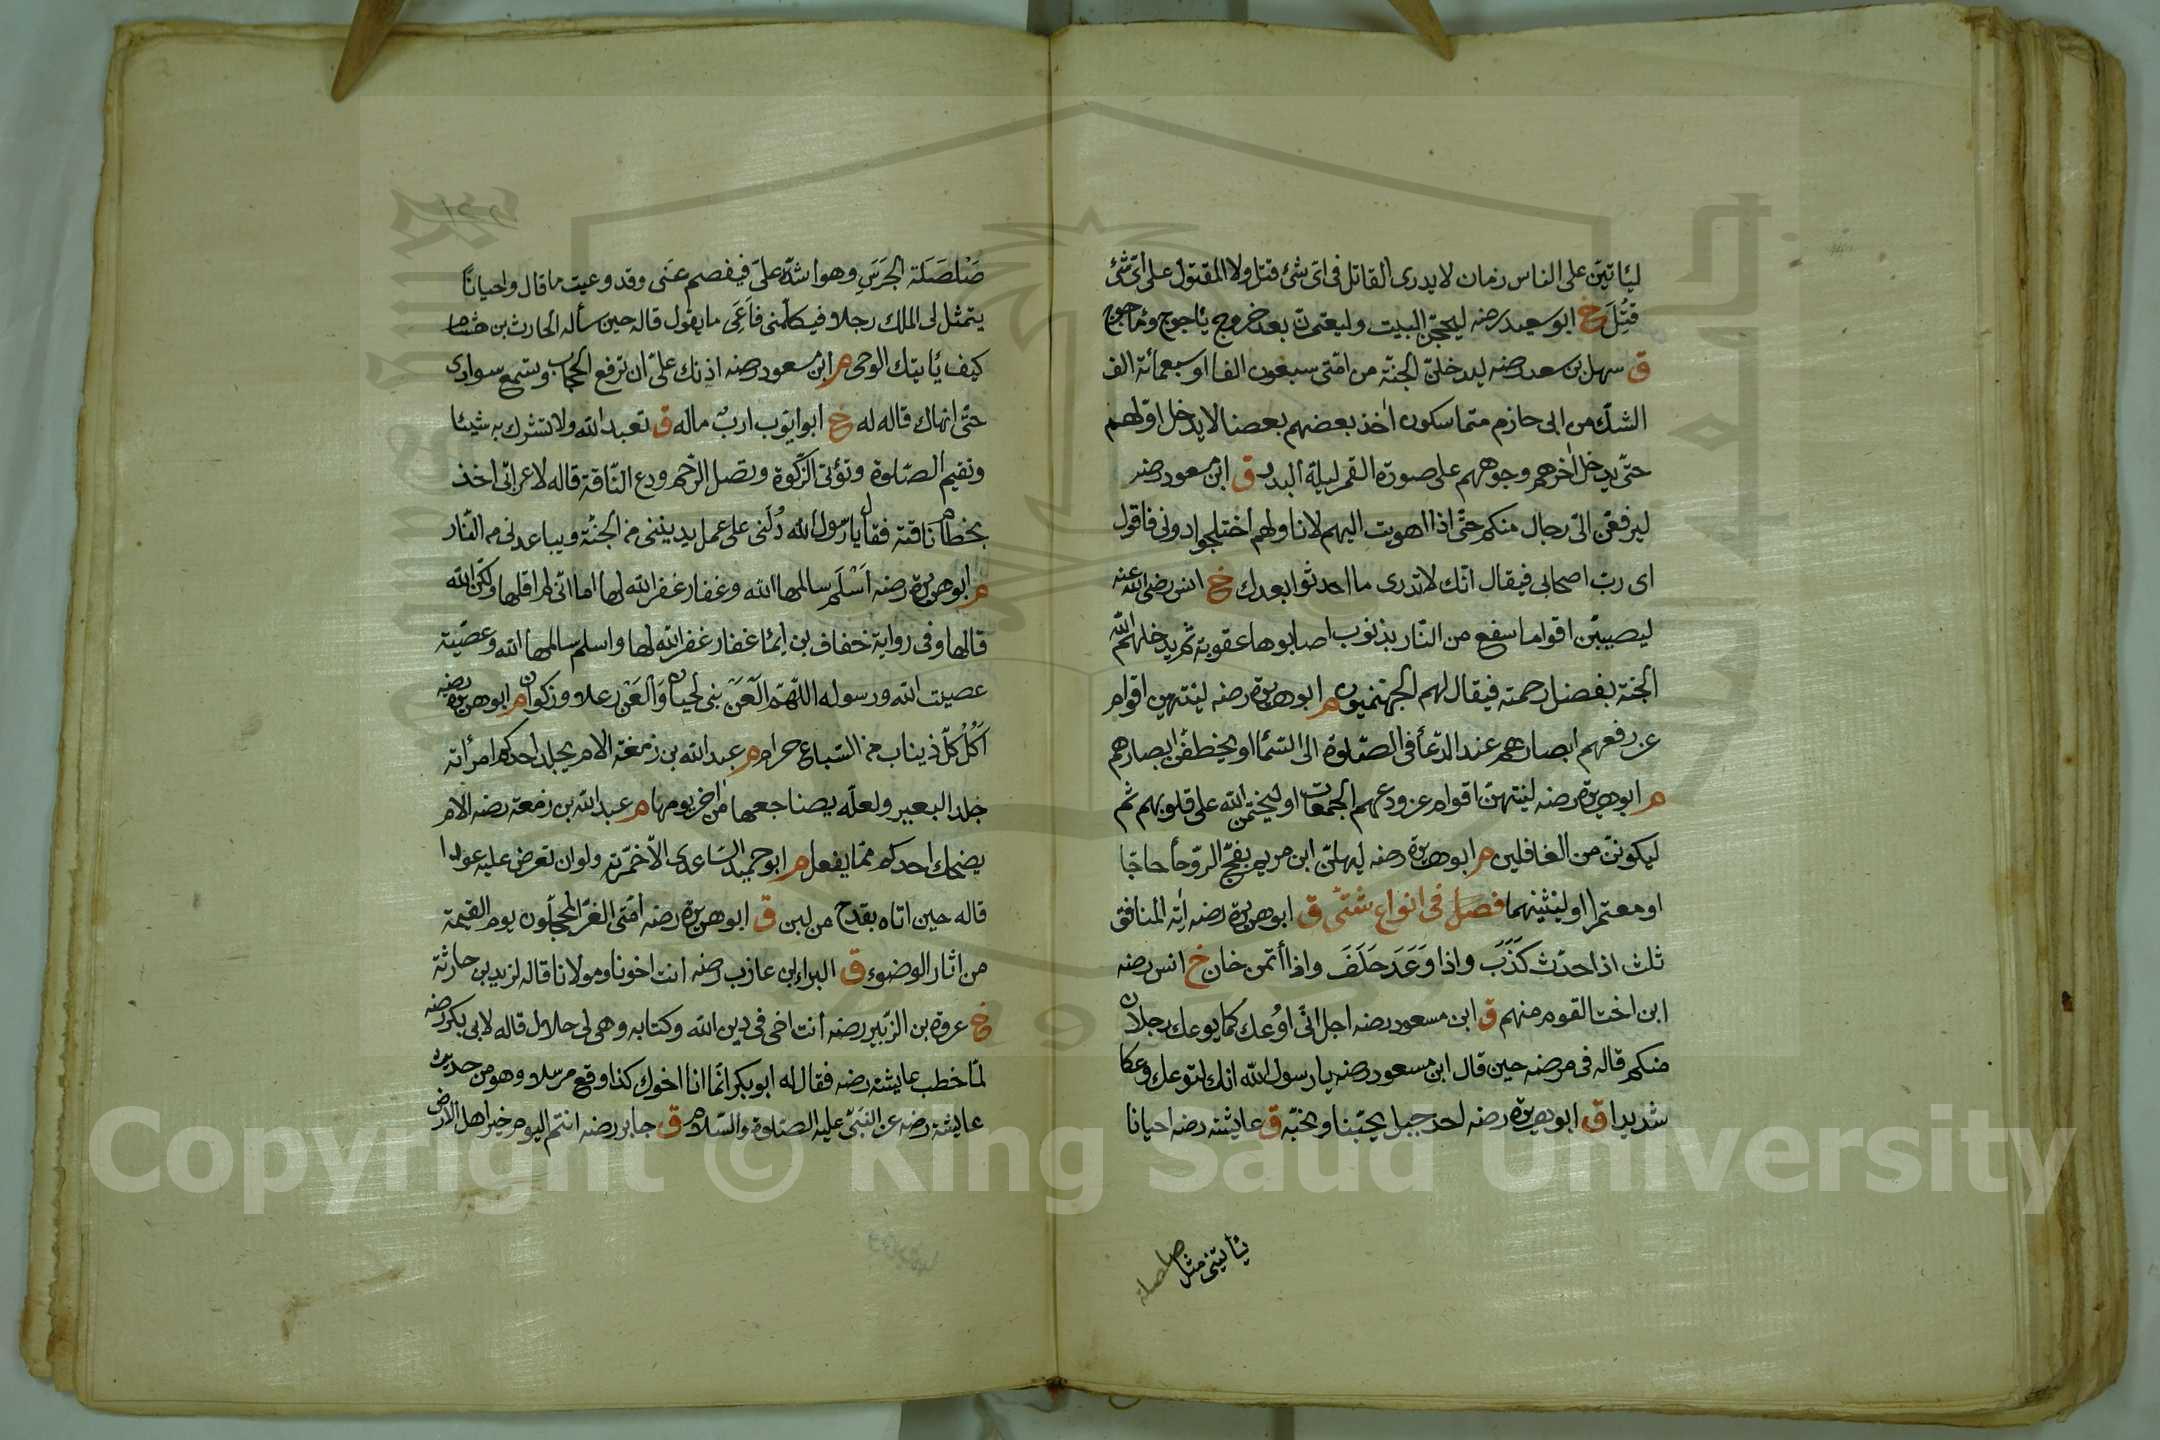 ليأتين على الناس زمان لا يدرى القاتل فى اى شئ قتل ولا المقتول على اى شئ
قتل خ ابو سعيد رضه ليحجن البيت وليعتمرن بعد خروج يأجوج ومأجوج
ق سهل بن سعد رضه ليدخلن الجنة من امتى سبعون الفا او سبعمائة الف
الشك من ابى حازم متماسكون اخذ بعضهم بعضا لا يدخل اولهم
حتى يدخل اخرهم وجوههم على صورة القمر ليلة البدر ق ابن مسعود رضه
ليرفعن الى رجال منكم حتى اذا اهويت اليهم لاناولهم اختلجوا دونى فاقول
اى رب اصحابى فيقال انك لا تدرى ما احدثوا بعدك خ انس رضى الله عنه
ليصيبن اقواما سفع من النار بذنوب اصابوها عقوبة ثم يدخلهم الله
الجنة بفضل رحمته فيقال لهم الجهنميون م ابو هريرة رضه لينتهين اقوام
عن رفعهم ابصارهم عند الدعأ فى الصلوة الى السمأ او ليخطفن ابصارهم
م ابو هريرة رضه لينتهين اقوام عن ودعهم الجمعات او ليختمن الله على قلوبهم ثم
ليكونن من الغافلين م ابو هريرة رضه ليهلن ابن مريم بفج الروحأ حاجا
او معتمرا او ليثنينهما فصل فى انواع شتى ق ابو هريرة رضه اية المنافق
ثلث اذا حدث كذب واذا وعد خلف واذا أتمن خان خ انس رضه
ابن اخت القوم منهم ق ابن مسعود رضه اجل انى اوعك كما يوعك رجلان
منكم قاله فى مرضه حين قال ابن مسعود رضه يا رسول الله انك لتوعك وعكا
شديدا ق ابو هريرة رضه احد جبل يحبنا ونحبه ق عايشة رضه احيانا
يأتينى مثل صلصلة
صلصلة الجرس وهو اشده على فيفصم عنى وقد وعيت ما قال واحيانا
يتمثل لى الملك رجلا فيكلمنى فاعى ما يقول قاله حين سأله الحارث بن هشام
كيف يأتيك الوحى م ابن مسعود رضه اذنك على ان ترفع الحجاب وتسمع سوادى
حتى انهاك قاله له خ ابو ايوب ارب ماله ق تعبد الله ولا تشرك به شيئا
وتقيم الصلوة وتؤتى الزكوة وتصل الرحم ودع الناقة قاله لاعرابى اخذ
بخطام ناقته فقال يا رسول الله دلنى على عمل يديننى من الجنة ويباعدنى من النار
م ابو هريرة رضه اسلم سالمها الله وغفار غفر الله لها اما انى لم اقلها ولكن الله
قالها وفى رواية خفاف بن ايمأ غفار غفر الله لها واسلم سالمها الله وعصية
عصيت الله ورسوله اللهم العن بنى لحيان والعن رعلا وذكوان م ابو هريرة رضه
اكل كل ذى ناب من السباع حرام م عبد الله بن زمعة الام يجلد احدكم امرأته
جلد البعير ولعله يضاجعها من اخر يومها م عبد الله بن زمعة رضه الام
يضحك احدكم مما يفعل م ابو حميد الساعدى الا خمرته ولو ان تعرض عليه عودا
قاله حين اتاه بقدح من لبن ق ابو هريرة رضه امتى الغر المحجلون يوم القيمة
من اثار الوضوء ق البراء بن عازب رضه انت اخونا ومولانا قاله لزيد بن حارثة
خ عروة بن الزبير رضه انت اخى فى دين الله وكتابه وهى لى حلال قاله لابى بكر رضه
لما خطب عايشة رضه فقال له ابو بكر انما انا اخوك كذا وقع مرسلا وهو من حديث
عايشة رضه عن النبى عليه الصلوة والسلام ق جابر رضه انتم اليوم خير اهل الارض
Copyright © King Saud University